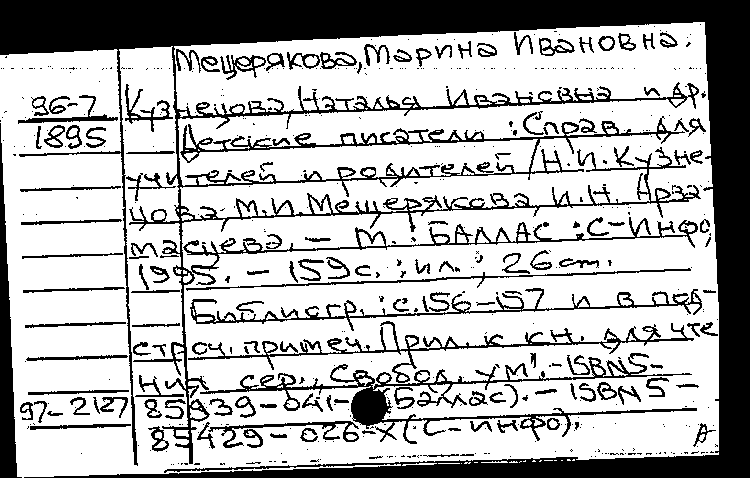 Мещерякова, Марина Ивановна.
96-7 Кузнецова, Наталья Ивановна и др.
1895 Детские писатели : Справ. для
учителей и родителей / Н.И. Кузне-
цова, М.И. Мещерякова, И.Н. Арза-
масцева. – М. : БАЛЛАС : С-Инфо,
1995. – 159с. : ил. ; 26 cm.
Библиогр. : с.156-157 и в под-
строч. примеч. Прил. к кн. для чте
ния сер. „Свобод. ум". – ISBN 5-
97-2127 85939-041- (Баллас). – ISBN 5-
85429-026-X (С-инфо).
А